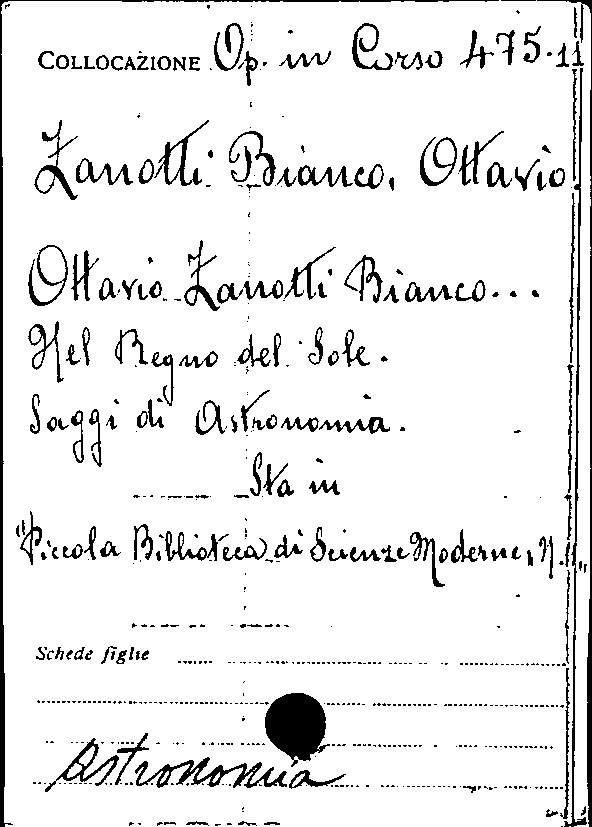 COLLOCAZIONE Op. in Corso 475.11
Zanotti Bianco, Ottavio.
Ottavio Zanotti Bianco...
Nel Regno del Sole.
Saggi di Astronomia.
Sta in
"Piccola Biblioteca di Scienze Moderne, N. 11„
Schede figlie
Astronomia